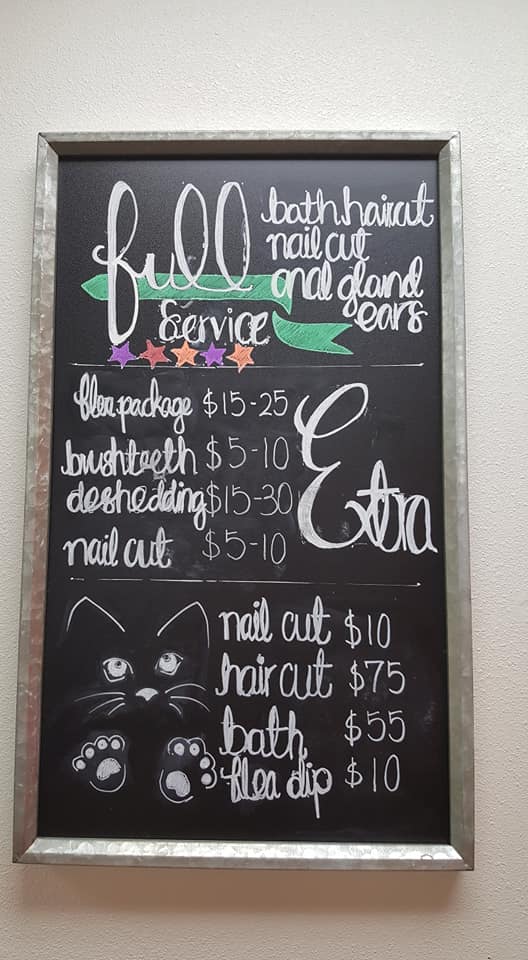 full
Service
bath, haircut
nail cut
anal gland
ears
flea package $15-25
brush teeth $5-10
deshedding $15-30
nail cut $5-10
Extra
nail cut $10
hair cut $75
bath $55
flea dip $10